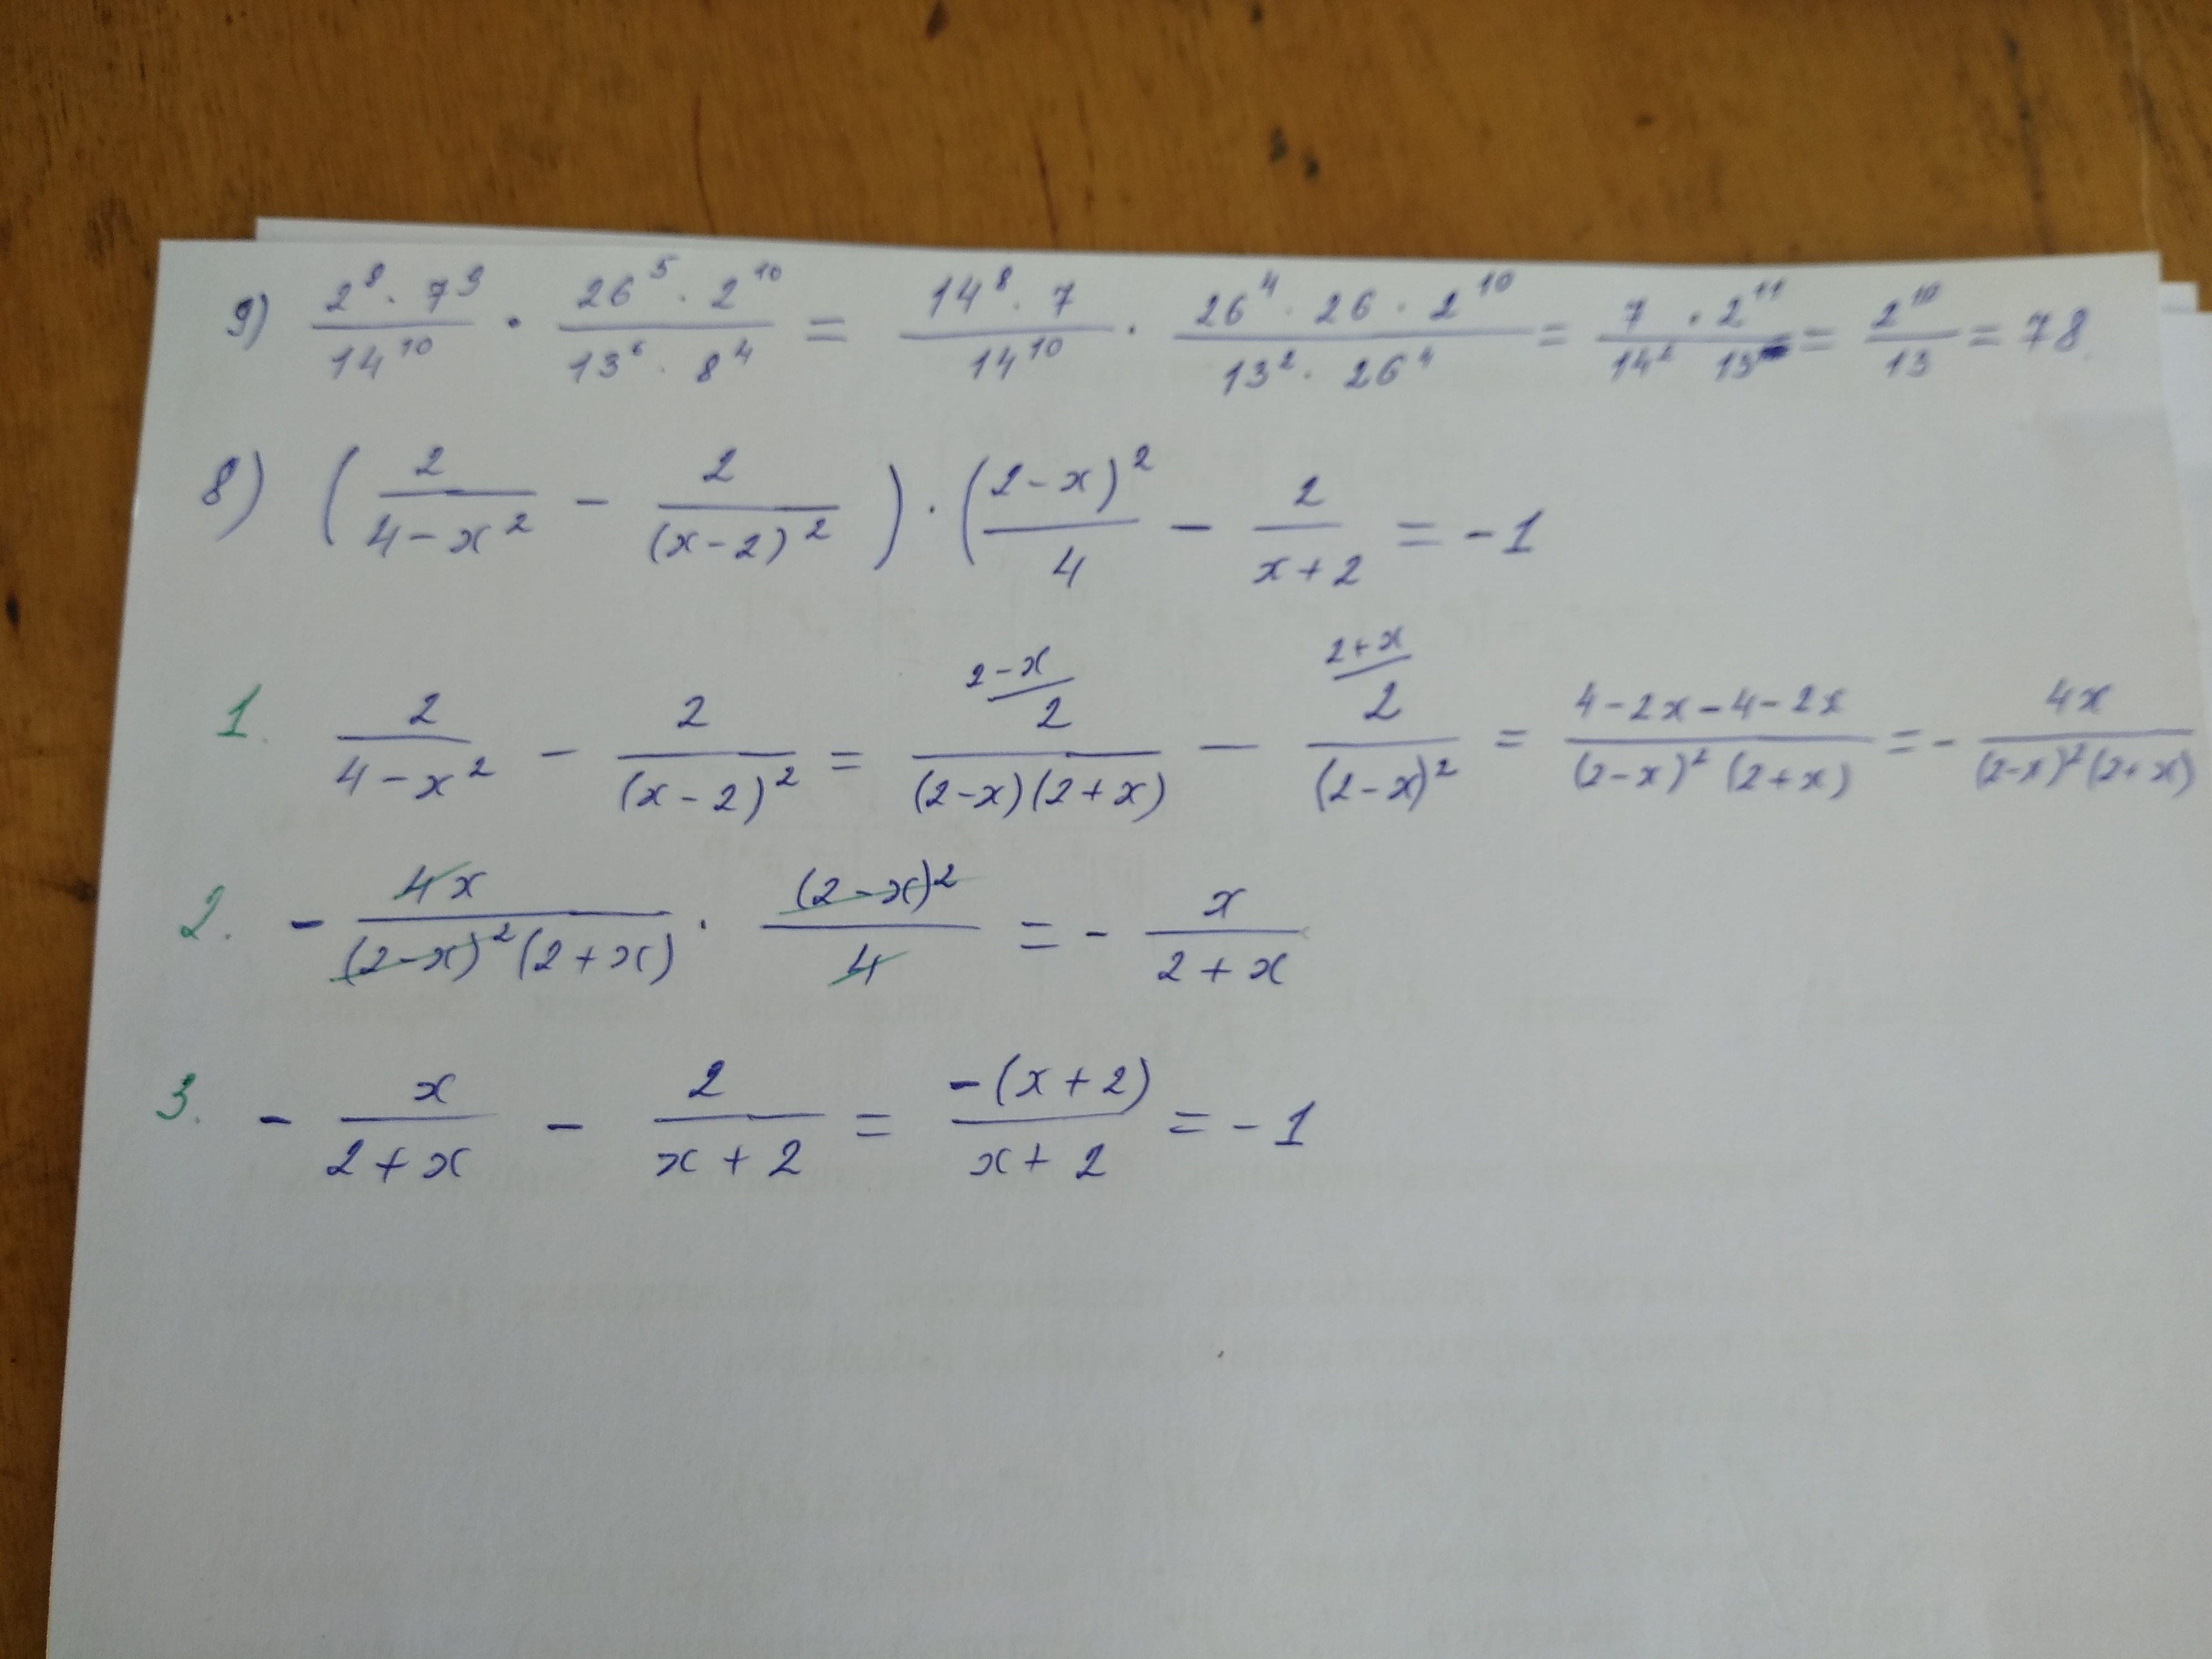 9) \frac{2^8 · 7^9}{14^{10}} · \frac{26^5 · 2^{10}}{13^6 · 8^4} = \frac{14^8 · 7}{14^{10}} · \frac{26^4 · 26 · 2^{10}}{13^2 · 26^4} = \frac{7 · 2^{11}}{14^2 13} = \frac{2^{10}}{13} = 78
8) (\frac{2}{4-x^2} - \frac{2}{(x-2)^2}) · (\frac{2-x)^2}{4} - \frac{2}{x+2} = -1
1. \frac{2}{4-x^2} - \frac{2}{(x-2)^2} = \frac{^{2-x/}2}{(2-x)(2+x)} - \frac{^{2+x/}2}{(2-x)^2} = \frac{4-2x-4-2x}{(2-x)^2 (2+x)} = - \frac{4x}{(2-x)^2(2+x)}
2. - \frac{4x}{(2-x)^2(2+x)} · \frac{(2-x)^2}{4} = - \frac{x}{2+x}
3. - \frac{x}{2+x} - \frac{2}{x+2} = \frac{-(x+2)}{x+2} = -1